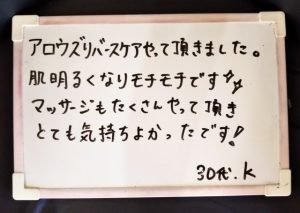 アロウズリバースケアやって頂きました。
肌明るくなりモチモチです✨
マッサージもたくさんやって頂き
とても気持ちよかったです!
30代.K